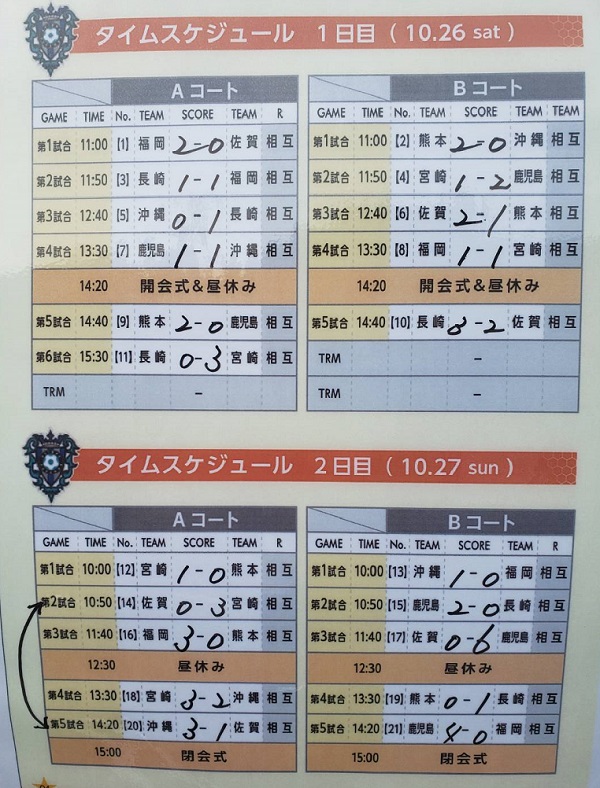 タイムスケジュール 1日目 ( 10.26 sat )
Aコート
GAME TIME No. TEAM SCORE TEAM R
第1試合 11:00 [1] 福岡 2-0 佐賀 相互
第2試合 11:50 [3] 長崎 1-1 福岡 相互
第3試合 12:40 [5] 沖縄 0-1 長崎 相互
第4試合 13:30 [7] 鹿児島 1-1 沖縄 相互
14:20 開会式&昼休み
第5試合 14:40 [9] 熊本 2-0 鹿児島 相互
第6試合 15:30 [11] 長崎 0-3 宮崎 相互
TRM -
Bコート
GAME TIME No. TEAM SCORE TEAM TEAM
第1試合 11:00 [2] 熊本 2-0 沖縄 相互
第2試合 11:50 [4] 宮崎 1-2 鹿児島 相互
第3試合 12:40 [6] 佐賀 2-1 熊本 相互
第4試合 13:30 [8] 福岡 1-1 宮崎 相互
14:20 開会式&昼休み
第5試合 14:40 [10] 長崎 3-2 佐賀 相互
TRM -
TRM -
タイムスケジュール 2日目 ( 10.27 sun )
Aコート
GAME TIME No. TEAM SCORE TEAM R
第1試合 10:00 [12] 宮崎 1-0 熊本 相互
第2試合 10:50 [14] 佐賀 0-3 宮崎 相互
第3試合 11:40 [16] 福岡 3-0 熊本 相互
12:30 昼休み
第4試合 13:30 [18] 宮崎 3-2 沖縄 相互
第5試合 14:20 [20] 沖縄 3-1 佐賀 相互
15:00 閉会式
Bコート
GAME TIME No. TEAM SCORE TEAM R
第1試合 10:00 [13] 沖縄 1-0 福岡 相互
第2試合 10:50 [15] 鹿児島 2-0 長崎 相互
第3試合 11:40 [17] 佐賀 0-6 鹿児島 相互
12:30 昼休み
第4試合 13:30 [19] 熊本 0-1 長崎 相互
第5試合 14:20 [21] 鹿児島 4-0 福岡 相互
15:00 閉会式